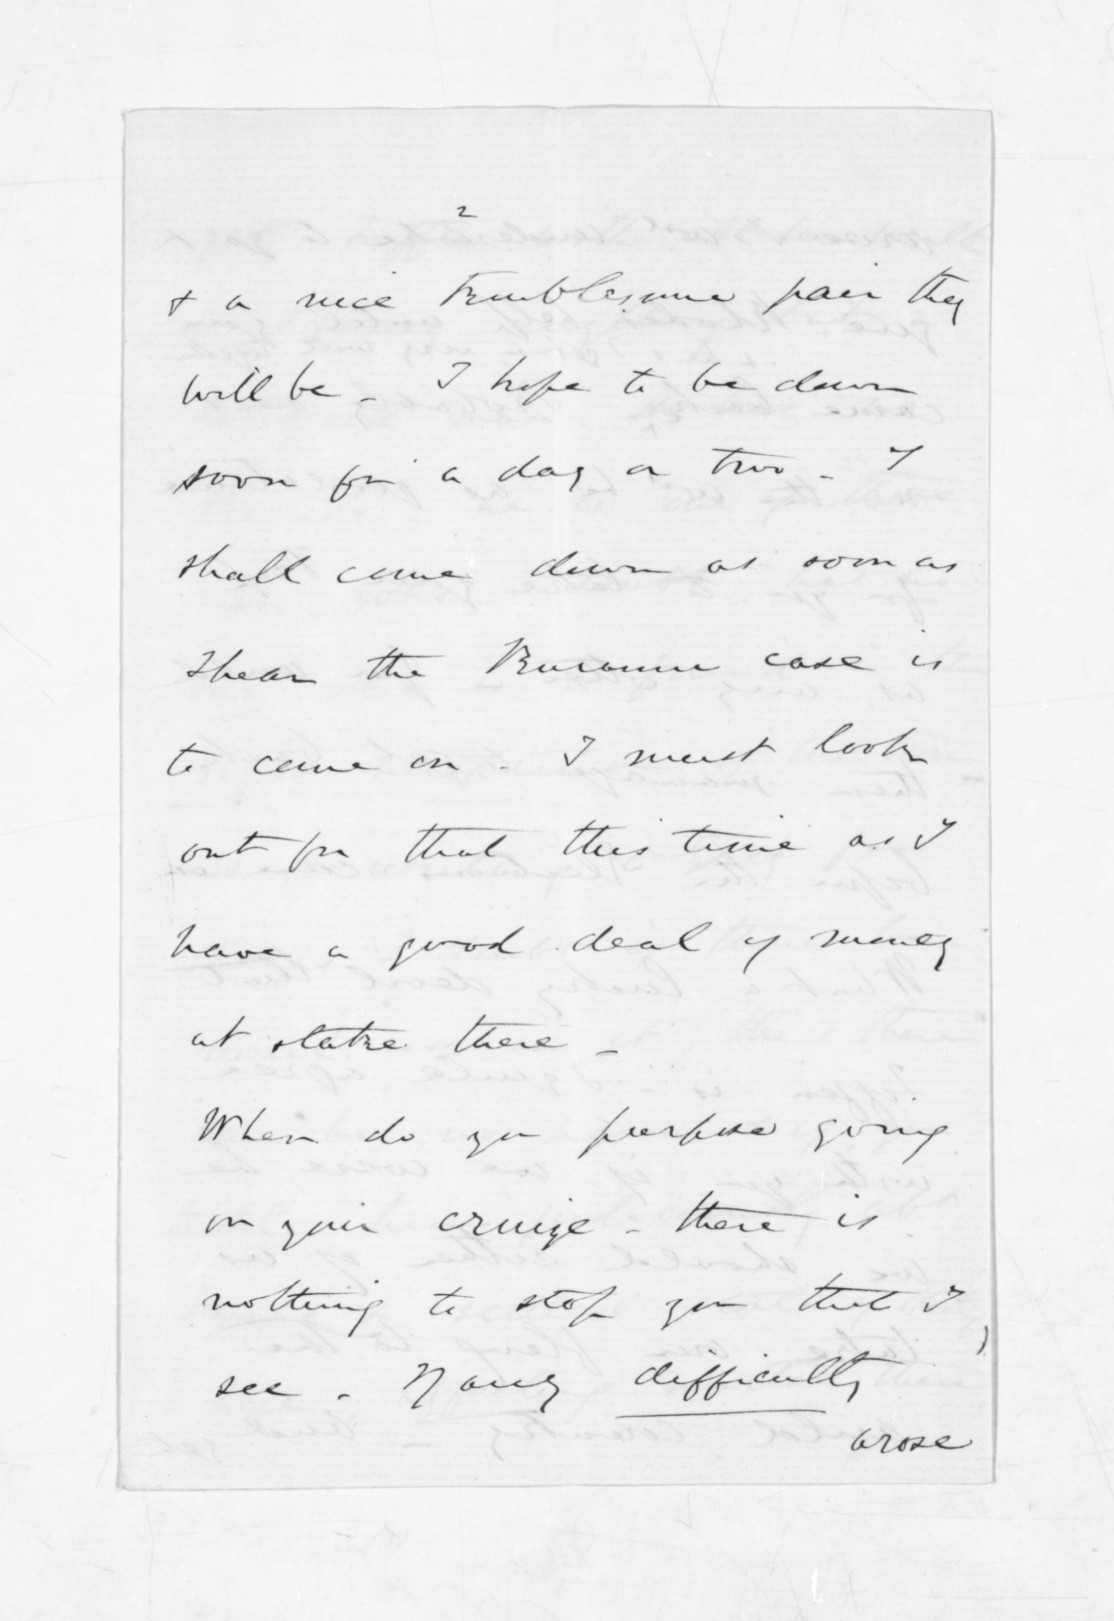 2
& a nice troublesome pair they
will be - I hope to be down
soon for a day or two - I
shall come down as soon as
I hear the case is
to come on - I must look
out for that this time as I
have a good deal of money
at stake there -
When do you purpose going
on your cruize - there is
nothing to stop you that I
see - If any difficulty
arose